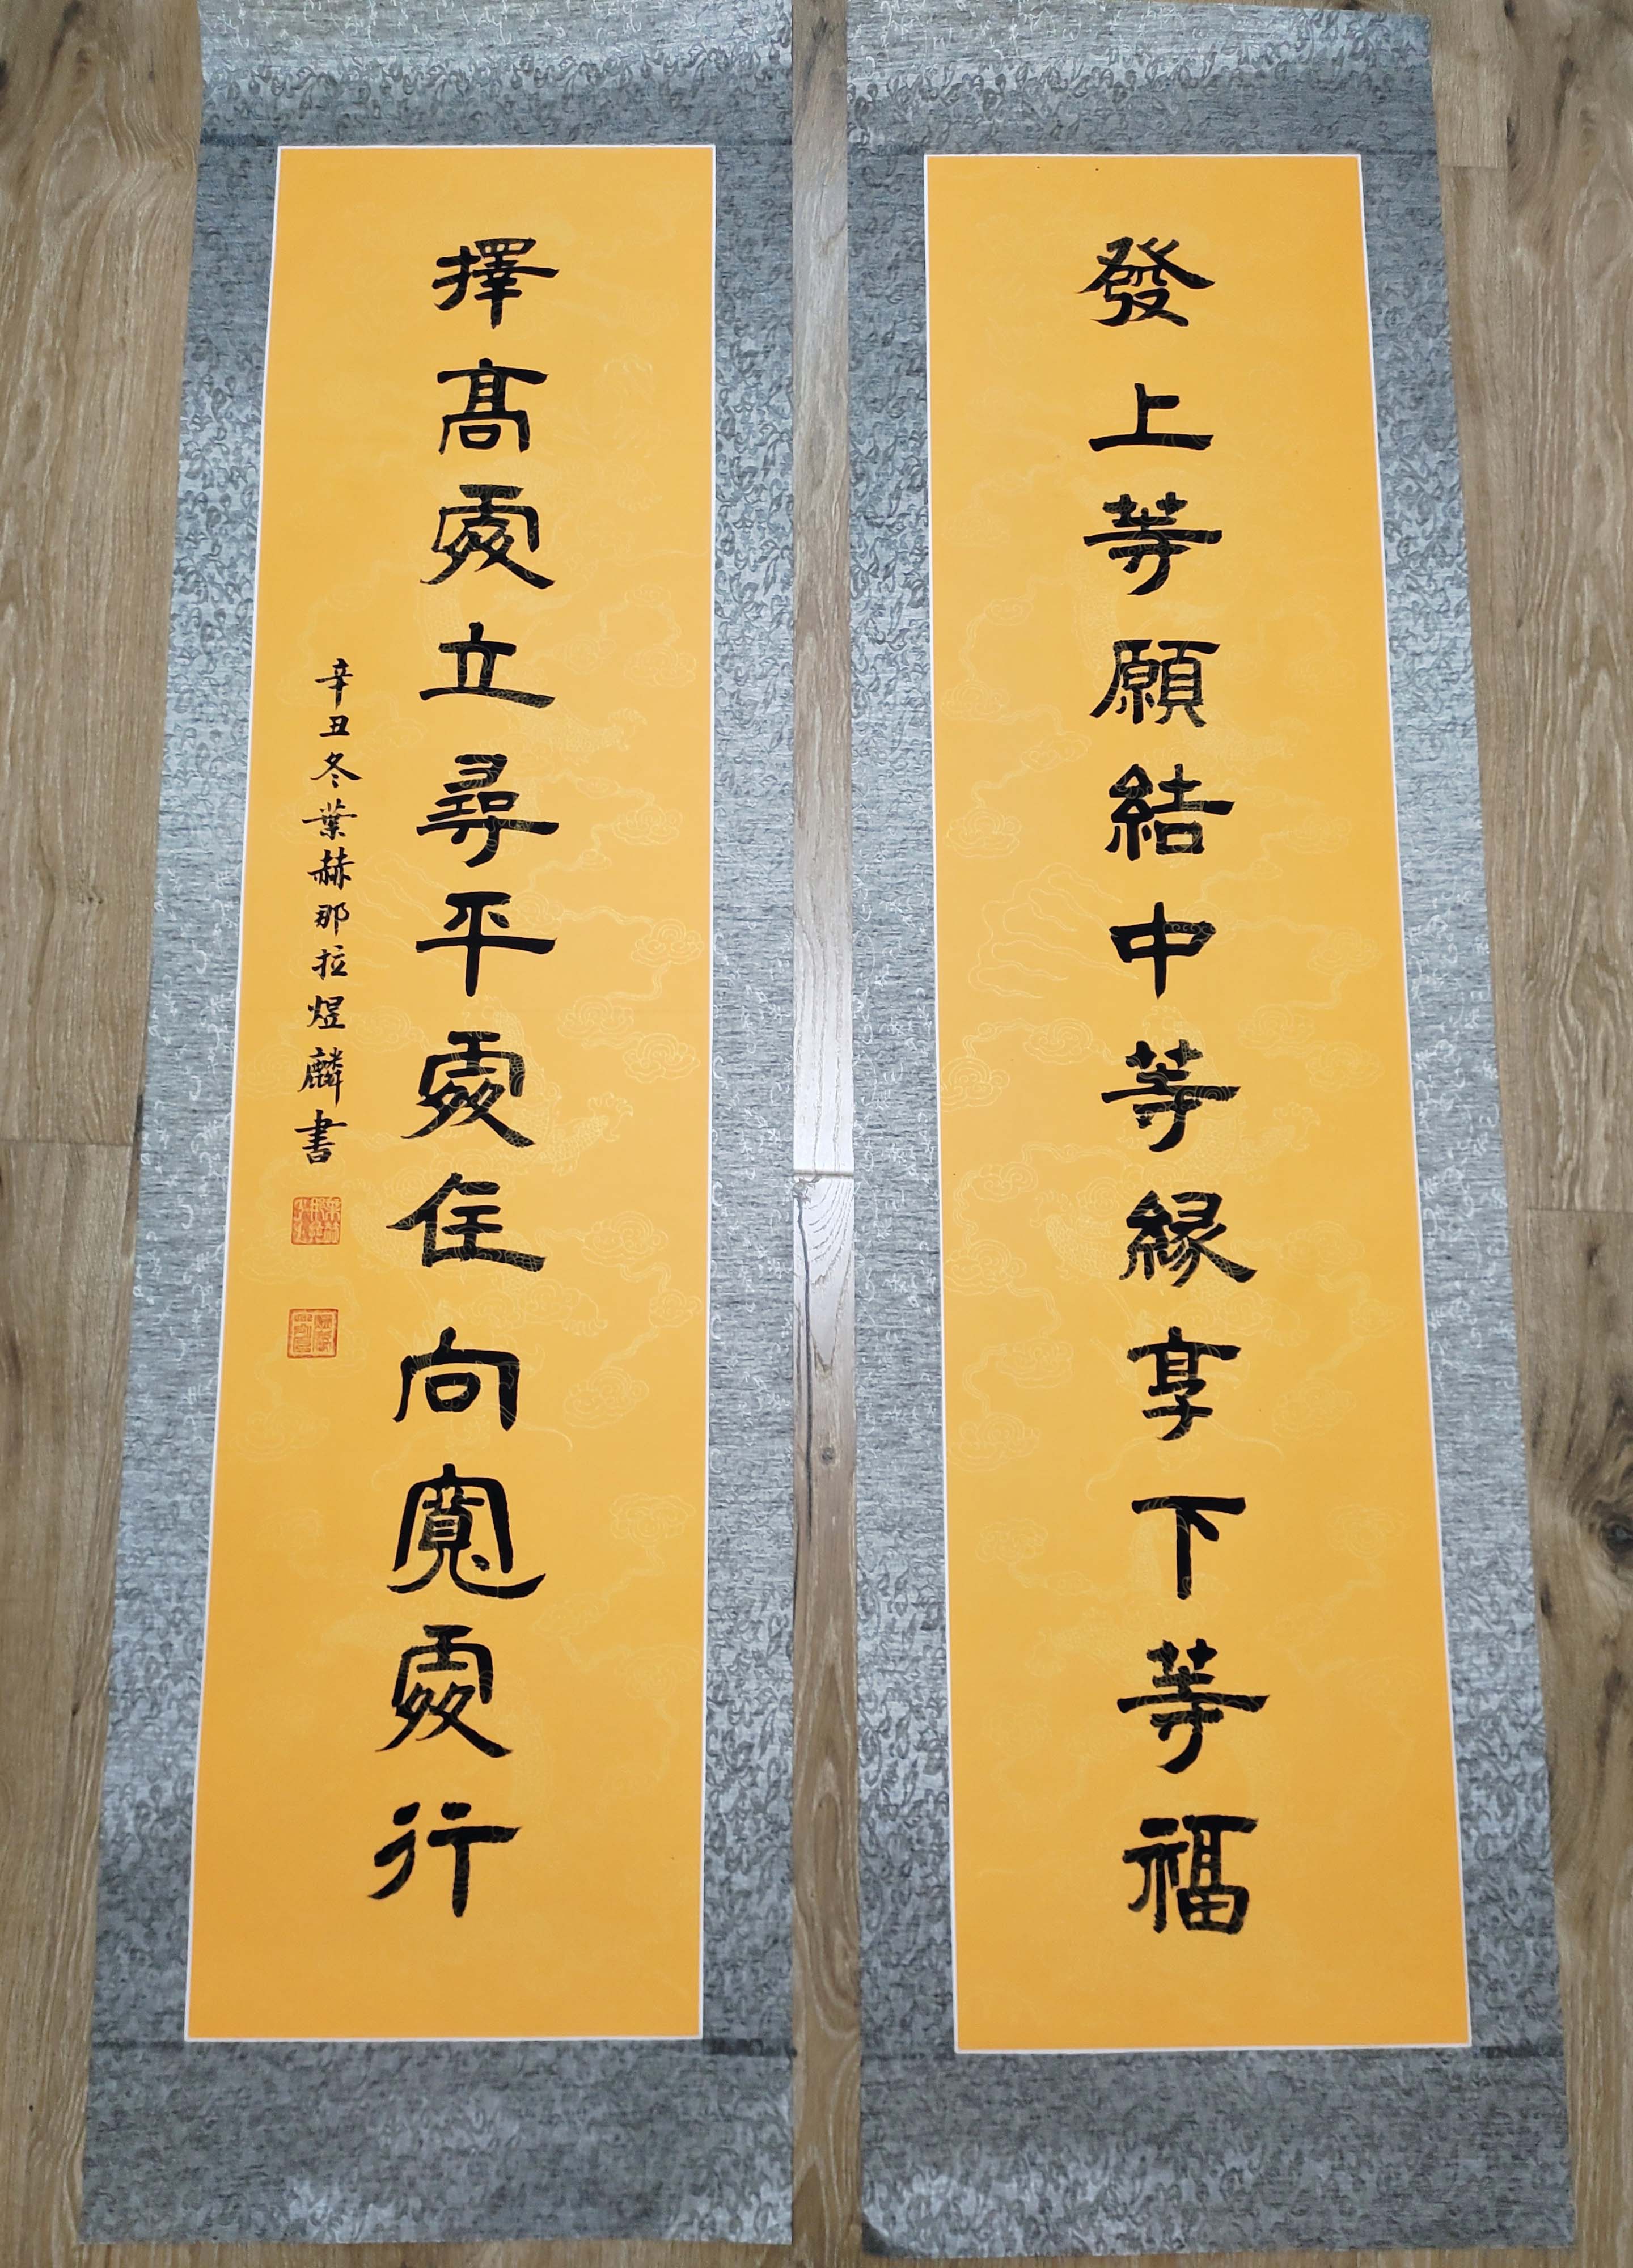 發上等願結中等緣享下等福
擇高處立尋平處住向寬處行
辛丑冬葉赫那拉煜麟書